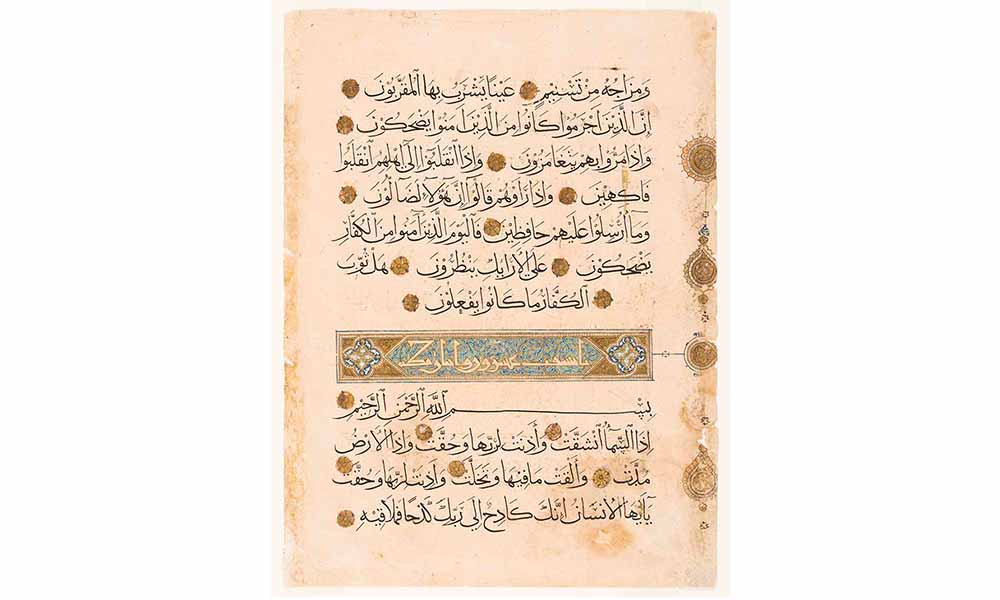 وَمِزَاجُهُ مِنْ تَسْنِيمٍ عَيْنًا يَشْرَبُ بِهَا الْمُقَرَّبُونَ
إِنَّ الَّذِينَ أَجْرَمُوا كَانُوا مِنَ الَّذِينَ آمَنُوا يَضْحَكُونَ
وَإِذَا مَرُّوا بِهِمْ يَتَغَامَزُونَ وَإِذَا انْقَلَبُوا إِلَى أَهْلِهِمُ انْقَلَبُوا
فَاكِهِينَ وَإِذَا رَأَوْهُمْ قَالُوا إِنَّ هَؤُلَاءِ لَضَالُّونَ
وَمَا أُرْسِلُوا عَلَيْهِمْ حَافِظِينَ فَالْيَوْمَ الَّذِينَ آمَنُوا مِنَ الْكُفَّارِ
يَضْحَكُونَ عَلَى الْأَرَائِكِ يَنْظُرُونَ هَلْ ثُوِّبَ
الْكُفَّارُ مَا كَانُوا يَفْعَلُونَ
بِسْمِ اللَّهِ الرَّحْمَنِ الرَّحِيمِ
إِذَا السَّمَاءُ انْشَقَّتْ وَأَذِنَتْ لِرَبِّهَا وَحُقَّتْ وَإِذَا الْأَرْضُ
مُدَّتْ وَأَلْقَتْ مَا فِيهَا وَتَخَلَّتْ وَأَذِنَتْ لِرَبِّهَا وَحُقَّتْ
يَا أَيُّهَا الْإِنْسَانُ إِنَّكَ كَادِحٌ إِلَى رَبِّكَ كَدْحًا فَمُلَاقِيهِ